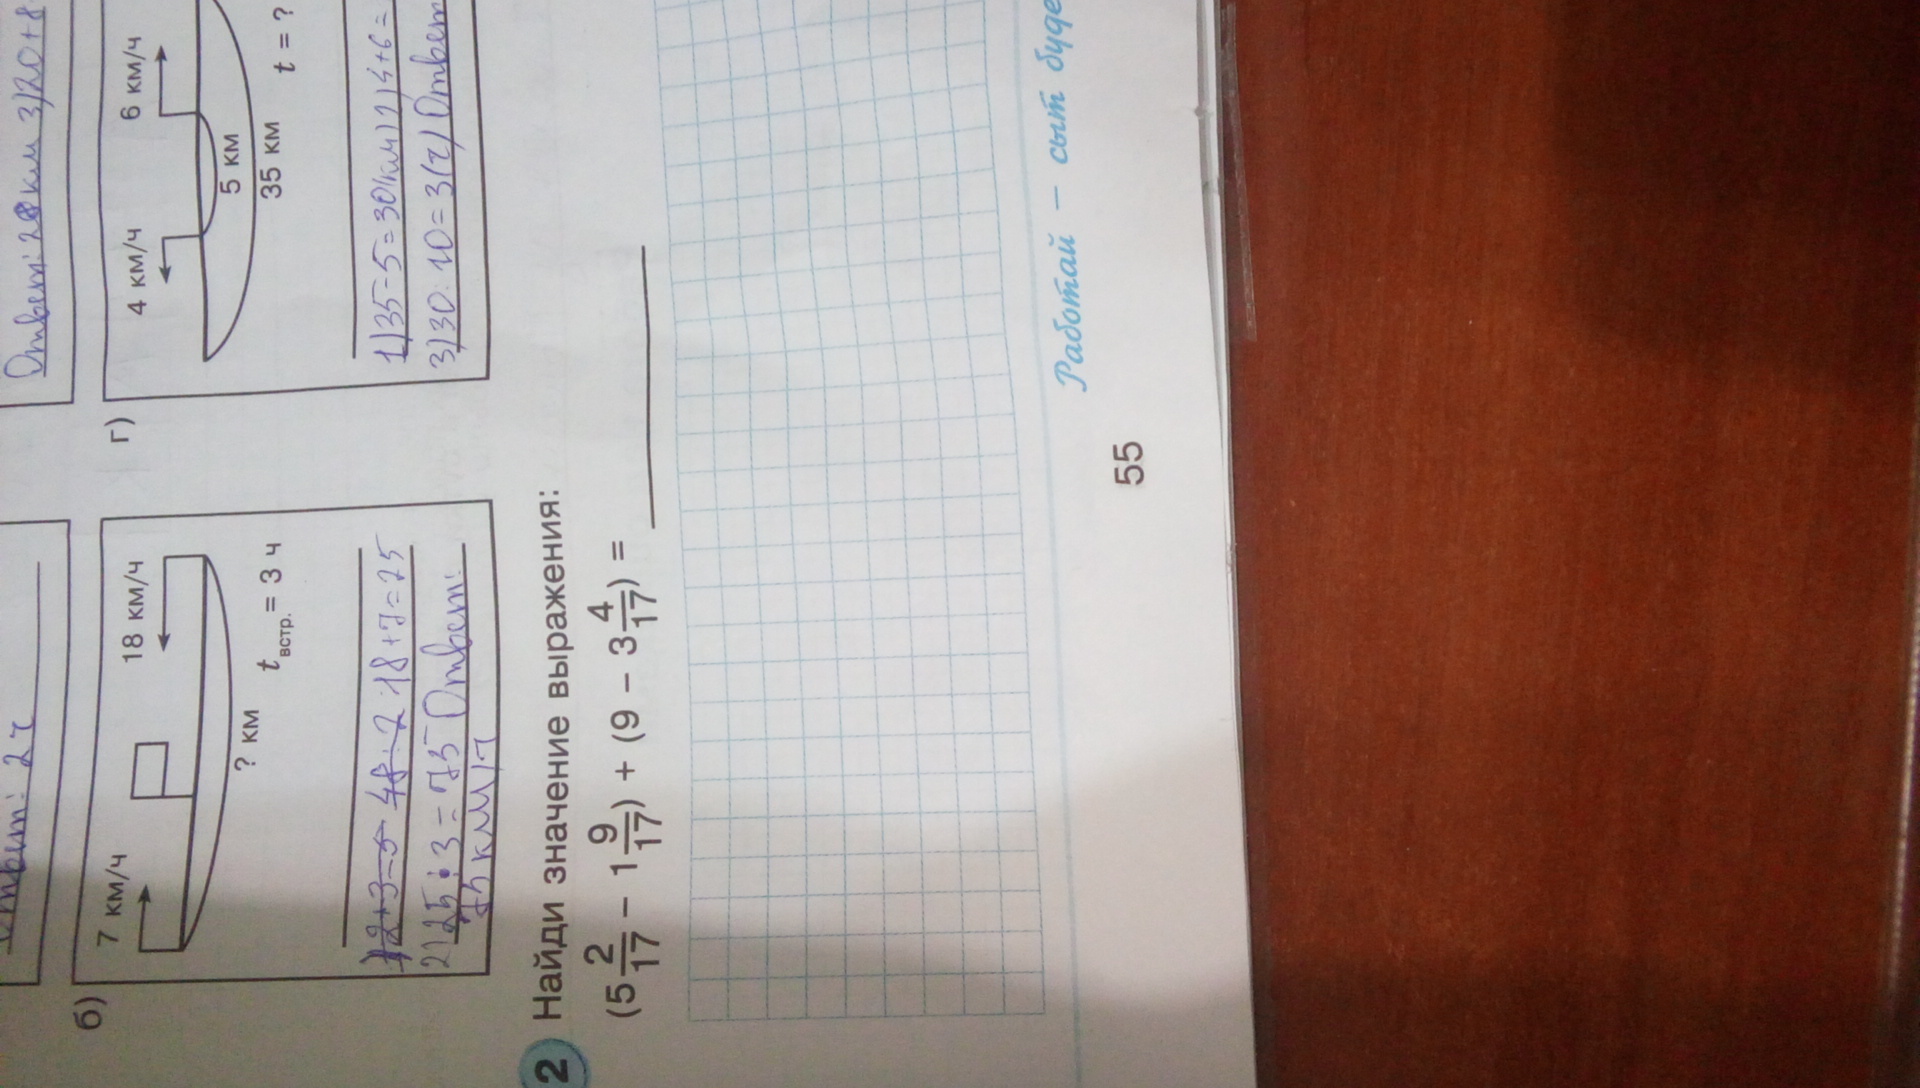 Ответ: 2 ч
Ответ: 28 км 3)20+8
б)
7 км/ч 18 км/ч
? км
t встр. = 3 ч
1)2+3=5 48:2 18+7=25
2)25·3=75 Ответ:
75 км/ч
г)
4 км/ч 6 км/ч
5 км
35 км
t = ?
1)35-5=30(км)2)4+6=
3)30:10=3(ч) Ответ
2 Найди значение выражения:
(5 2/17 − 1 9/17) + (9 − 3 4/17) =
Работай — сыт буде
55